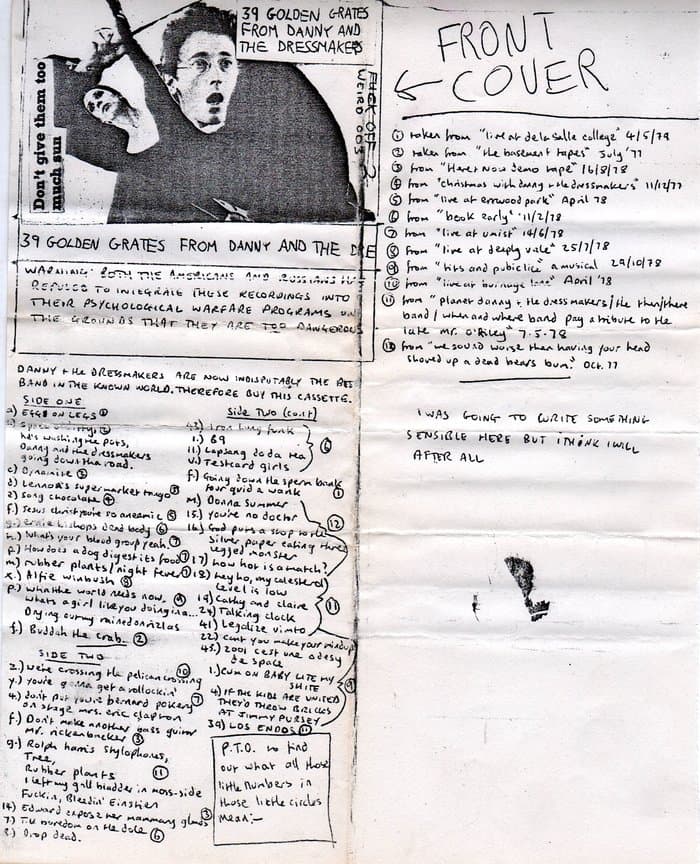 39 GOLDEN GRATES
FROM DANNY AND
THE DRESSMAKERS
Don't give them too
much sun
FUCK OFF 2
WEIRD 003
39 GOLDEN GRATES FROM DANNY AND THE DRE
WARNING: BOTH THE AMERICANS AND RUSSIANS HAVE
REFUSED TO INTEGRATE THESE RECORDINGS INTO
THEIR PSYCHOLOGICAL WARFARE PROGRAMS ON
THE GROUNDS THAT THEY ARE TOO DANGEROUS
DANNY + the DRESSMAKERS ARE NOW INDISPUTABLY THE BEST
BAND IN THE KNOWN WORLD. THEREFORE BUY THIS CASSETTE.
SIDE ONE
a) EGGS ON LEGS ①
he's washing the pots,
Danny and the dressmakers
going down the road.
c) Dynamite ③
d) Lennon's supermarket tango ⑤
2) Song chocolate ④
f.) Jesus christ you're so anaemic ⑤
g.) ernie bishops dead body ⑥
h.) What's your blood group yeah. ⑦
p.) How does a dog digest its food ⑦
m) rubber plants/night fever ⑦
x.) Alfie winbush ⑧
p.) What the world needs now. ⑨
Whats a girl like you doing in a...
Drying out my rained on rizlas
f.) Buddah the crab. ②
SIDE TWO
2.) We're crossing the pelican crossing ⑩
y.) you're gonna get a rollockin'
4.) don't put yours bernard pokery ⑦
on stage mrs. eric clapton
f.) Don't make another bass guitar
mr. rickenbacker ③
g.) Rolph harris stylophones,
Tree,
Rubber plants ⑪
I left my gall bladder in moss-side
Fuckin, Bleedin' Einstien
14) Edward expose her mammary glands ③
7) T.V. boredom on the dole ⑥
8.) Drop dead.
SIDE TWO (cont)
43) Iron lung funk
1.) 69
11) Lapsang doda tea ⑥
v1) Testcard girls
f.) Going down the sperm bank
four quid a wank ①
m) Donna Summer
15.) you're no doctor ⑫
16.) God puts a stop to the
Silver paper eating three
legged monster
17) how hot is a match?
18) hey ho, my calesterol
level is low
19) Cathy and Claire ⑪
24) Talking clock
41) Legalize vimto
22) Can't you make your mind up
45.) 2001 cest une adesy
de space
1.) CUM ON BABY LITE MY
SHITE ⑨
4) IF THE KIDS ARE UNITED
THEY'D THROW BRICKS
AT JIMMY PURSEY
39) LOS ENDOS ⑪
P.T.O. to find
out what all those
little numbers in
those little circles
mean:-
FRONT
COVER
① taken from "live at de la salle college" 4/5/79
② taken from "the basement tapes" July '77
③ from "Here + Now demo tape" 16/8/78
④ from "christmas with danny + the dressmakers" 11/12/77
⑤ from "live at errwood park" April 78
⑥ from "book early" 11/2/78
⑦ from "live at umist" 14/6/78
⑧ from "live at deeply vale" 25/7/78
⑨ from "tits and pubic lice" a musical 29/10/78
⑩ from "live at burnage lane" April '78
⑪ from "planet danny + the dressmakers/the then/there
band / when and where band pay a tribute to the
late mr. o'Riley" 7.5.78
⑫ from "we sound worse than having your head
shoved up a dead bears bum." OCT. 77
I WAS GOING TO WRITE SOMETHING
SENSIBLE HERE BUT I THINK I WILL
AFTER ALL